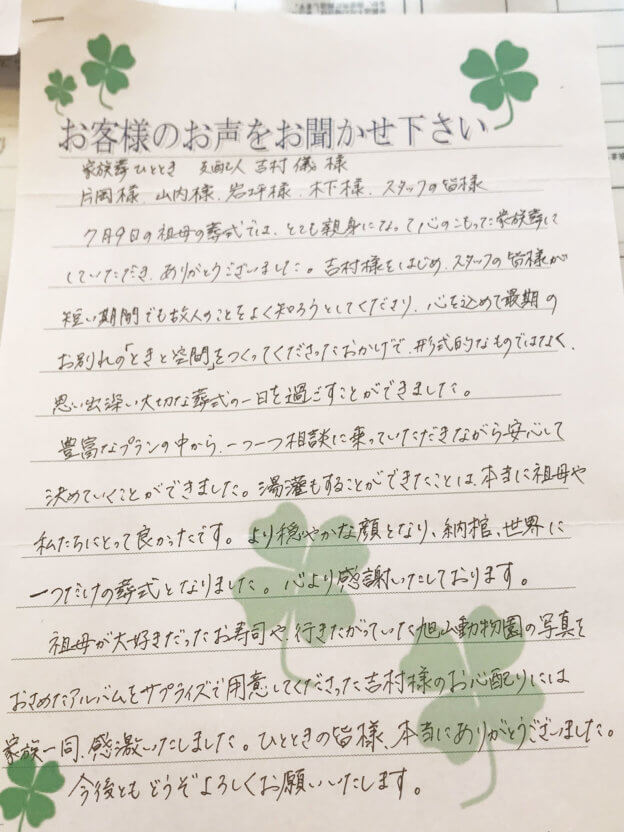 お客様のお声をお聞かせ下さい
家族葬ひととき 支配人 吉村 儀 様
片岡様、山内様、岩坪様、木下様、スタッフの皆様
7月9日の祖母の葬式では、とても親身になって心のこもった家族葬に
していただき、ありがとうございました。吉村様をはじめ、スタッフの皆様が
短い期間でも故人のことをよく知ろうとしてくださり、心を込めて最期の
お別れの「ときと空間」をつくってくださったおかげで、形式的なものではなく、
思い出深い大切な葬式の一日を過ごすことができました。
豊富なプランの中から、一つ一つ相談に乗っていただきながら安心して
決めていくことができました。湯灌もすることができたことは、本当に祖母や
私たちにとって良かったです。より穏やかな顔となり、納棺、世界に
一つだけの葬式となりました。心より感謝いたしております。
祖母が大好きだったお寿司や、行きたがっていた旭山動物園の写真を
おさめたアルバムをサプライズで用意してくださった吉村様のお心配りには
家族一同、感激いたしました。ひとときの皆様、本当にありがとうございました。
今後ともどうぞよろしくお願いいたします。